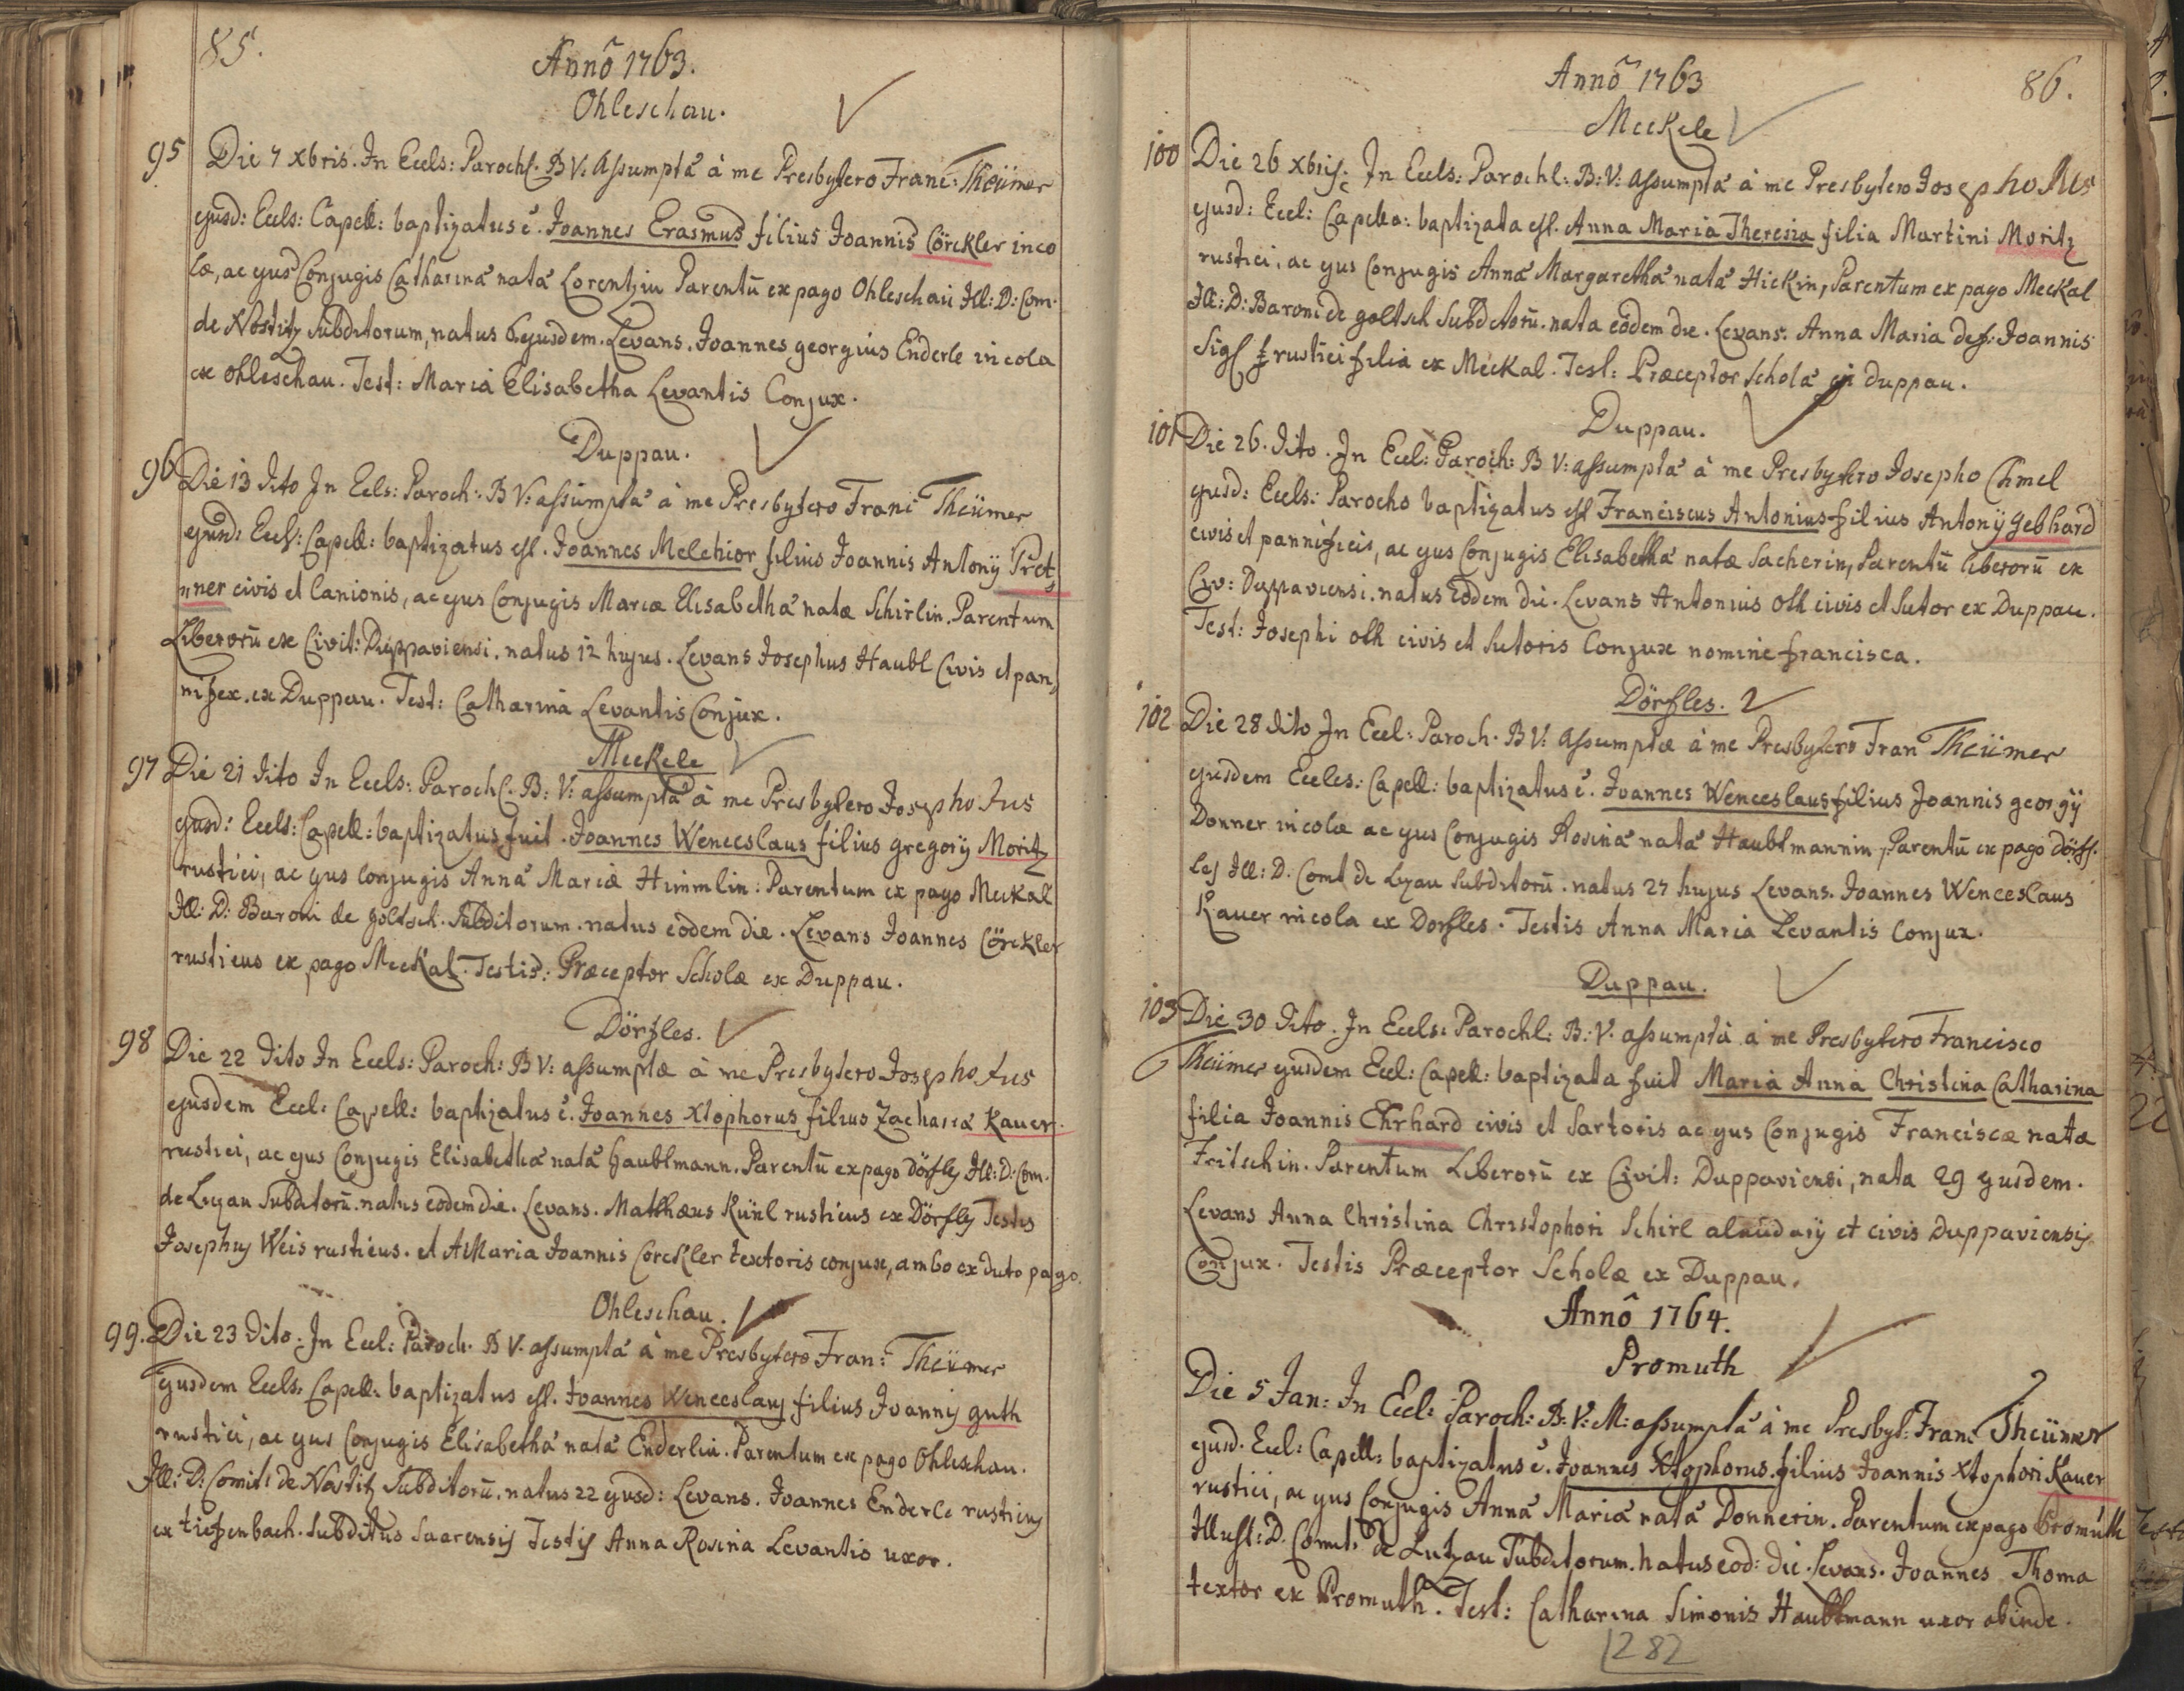 85.
Annô 1763.
Ohleschau.
95 Die 7 Xbris. In Eccls: Parochl. B V: Assumptâ à me Presbytero Franc: Theümer
ejusd: Eccls: Capell: baptizatus ê. Joannes Erasmus filius Joannis Cörckler inco
læ, ac ejus Conjugis Catharinâ natâ Lorentzin Parentū ex pago Ohleschau Ill: D: Com.
de Nostitz Subditorum, natus 6 ejusdem. Levans. Joannes georgius Enderle incola
ex ohleschau. Test: Maria Elisabetha Levantis Conjux.
Duppau.
96 Die 13 dito In Ecls: Paroch: B V: assumptâ à me Presbytero Franc Theümer
ejusd: Eccl: Capell: baptizatus est. Joannes Melchior filius Joannis Antonÿ Pret
nner civis et lanionis, ac ejus Conjugis Mariæ Elisabethâ natæ Schirlin. Parentum
Liberorū ex Civit: Duppaviensi. natus 12 hujus. Levans Josephus Haubl Civis et pan,
nifex. ex Duppau. Test: Catharina Levantis Conjux.
Meckele
97 Die 21 dito In Eccls: Parochl. B: V: assumptâ à me Presbytero Josepho Aus
ejusd: Eccls: Capell: baptizatus fuit. Joannes Wenceslaus filius gregorÿ Moritz
rustici, ac ejus conjugis Annâ Mariâ Himmlin: Parentum ex pago Meckal
Ill: D: Baroni de goltsch. Subditorum. natus eôdem die. Levans Joannes Cörckler
rusticus ex pago Meckal. Testis: Præceptor Scholæ ex Duppau.
Dörfles.
98 Die 22 dito In Eccls: Paroch: B V: assumptæ à me Presbytero Josepho Aus
ejusdem Eccl: Capell: baptizatus ê. Joannes Xtophorus filius Zachariâ Kauer.
rustici, ac ejus Conjugis Elisabethâ natâ haubtmann. Parentū ex pago Dörfls Ill: D: Com.
de Lizau Subditorū. natus eodem die. Levans. Matthæus Künl rusticus ex Dörfls Testes
Josephus Weis rusticus. et AMaria Joannis Corckler textoris conjux, ambo ex dicto pago.
Ohleschau.
99. Die 23 dito. In Eccl: Paroch. B V. assumptâ à me Presbytero Fran: Theümer
ejusdem Eccls: Capell: baptizatus est. Joannes Wenceslaus filius Joannis guth
rustici, ac ejus Conjugis Elisabethâ natâ Enderlin. Parentum ex pago Ohleschau.
Ill: D: Comit: de Nostitz Subditorū. natus 22 ejusd: Levans. Joannes Enderle rusticus
ex tiefenbach. Subditus Saarensis Testis Anna Rosina Levantis uxor.
86.
Annô 1763
Meckele
100 Die 26 Xbris: In Eccls: Parochl: B: V: assumptâ à me Presbytero Josepho Aus
ejusd: Eccl: Capella: baptizata est. Anna Maria Theresia filia Martini Moritz
rustici, ac ejus Conjugis Annâ Margarethâ natâ Hickin, Parentum ex pago Meckal
Ill: D: Baroni de goltsch Subditorū. nata eôdem die. Levans. Anna Maria def: Joannis
Sigl rustici filia ex Meckal. Test: Præceptor Scholâ in duppau.
Duppau.
101 Die 26. dito. In Eccl: Paroch: B V: assumptâ à me Presbytero Josepho Chmel
ejusd: Eccls: Parocho baptizatus est Franciscus Antonius filius Antonÿ gebhard
civis et pannificis, ac ejus Conjugis Elisabethâ natæ Sacherin, Parentū liberorū ex
Civ: Duppaviensi. natus Eodem die. Levans Antonius oth civis et Sutor ex Duppau.
Test: Josephi oth civis et Sutoris Conjux nomine francisca.
Dörfles.
102 Die 28 dito In Eccl: Paroch. B V: assumptæ à me Presbytero Fran Theümer
ejusdem Eccles: Capell: baptizatus ê. Joannes Wenceslaus filius Joannis georgÿ
Donner incolæ ac ejus Conjugis Rosinâ natâ Haubtmannin, Parentū ex pago Dörf.
les Ill: D. Comit de Lizau Subditorū. natus 27 hujus Levans. Joannes Wenceslaus
Kauer incola ex Dorfles. Testis Anna Maria Levantis Conjux.
Duppau.
103 Die 30 dito. In Eccls: Parochl: B: V. assumptâ à me Presbytero Francisco
Theümer ejusdem Eccl: Capell: baptizata fuit Maria Anna Christina Catharina
filia Joannis Ehrhard civis et Sartoris ac ejus Conjugis Franciscæ natæ
Fritschin. Parentum Liberorū ex Civit: Duppaviensi, nata 29 ejusdem.
Levans Anna Christina Christophori Schirl alaudarÿ et civis Duppaviensis
Conjux. Testis Præceptor Scholæ ex Duppau.
Annô 1764.
Promuth
Die 5 Jan: In Eccl: Paroch: B: V: M: assumptâ à me Presbyt: Franc Theümer
ejusd. Eccl: Capell: baptizatus ê. Joannes Xtophorus filius Joannis Xtophori Kauer
rustici, ac ejus Conjugis Annâ Mariâ natâ Donnerin. Parentum ex pago Promuth
Illust: D. Comit: de Lutzau Subditorum. natus eod: die. Levans. Joannes Thoma
textor ex Promuth. Test: Catharina Simonis Haubtmann uxor abinde.
282